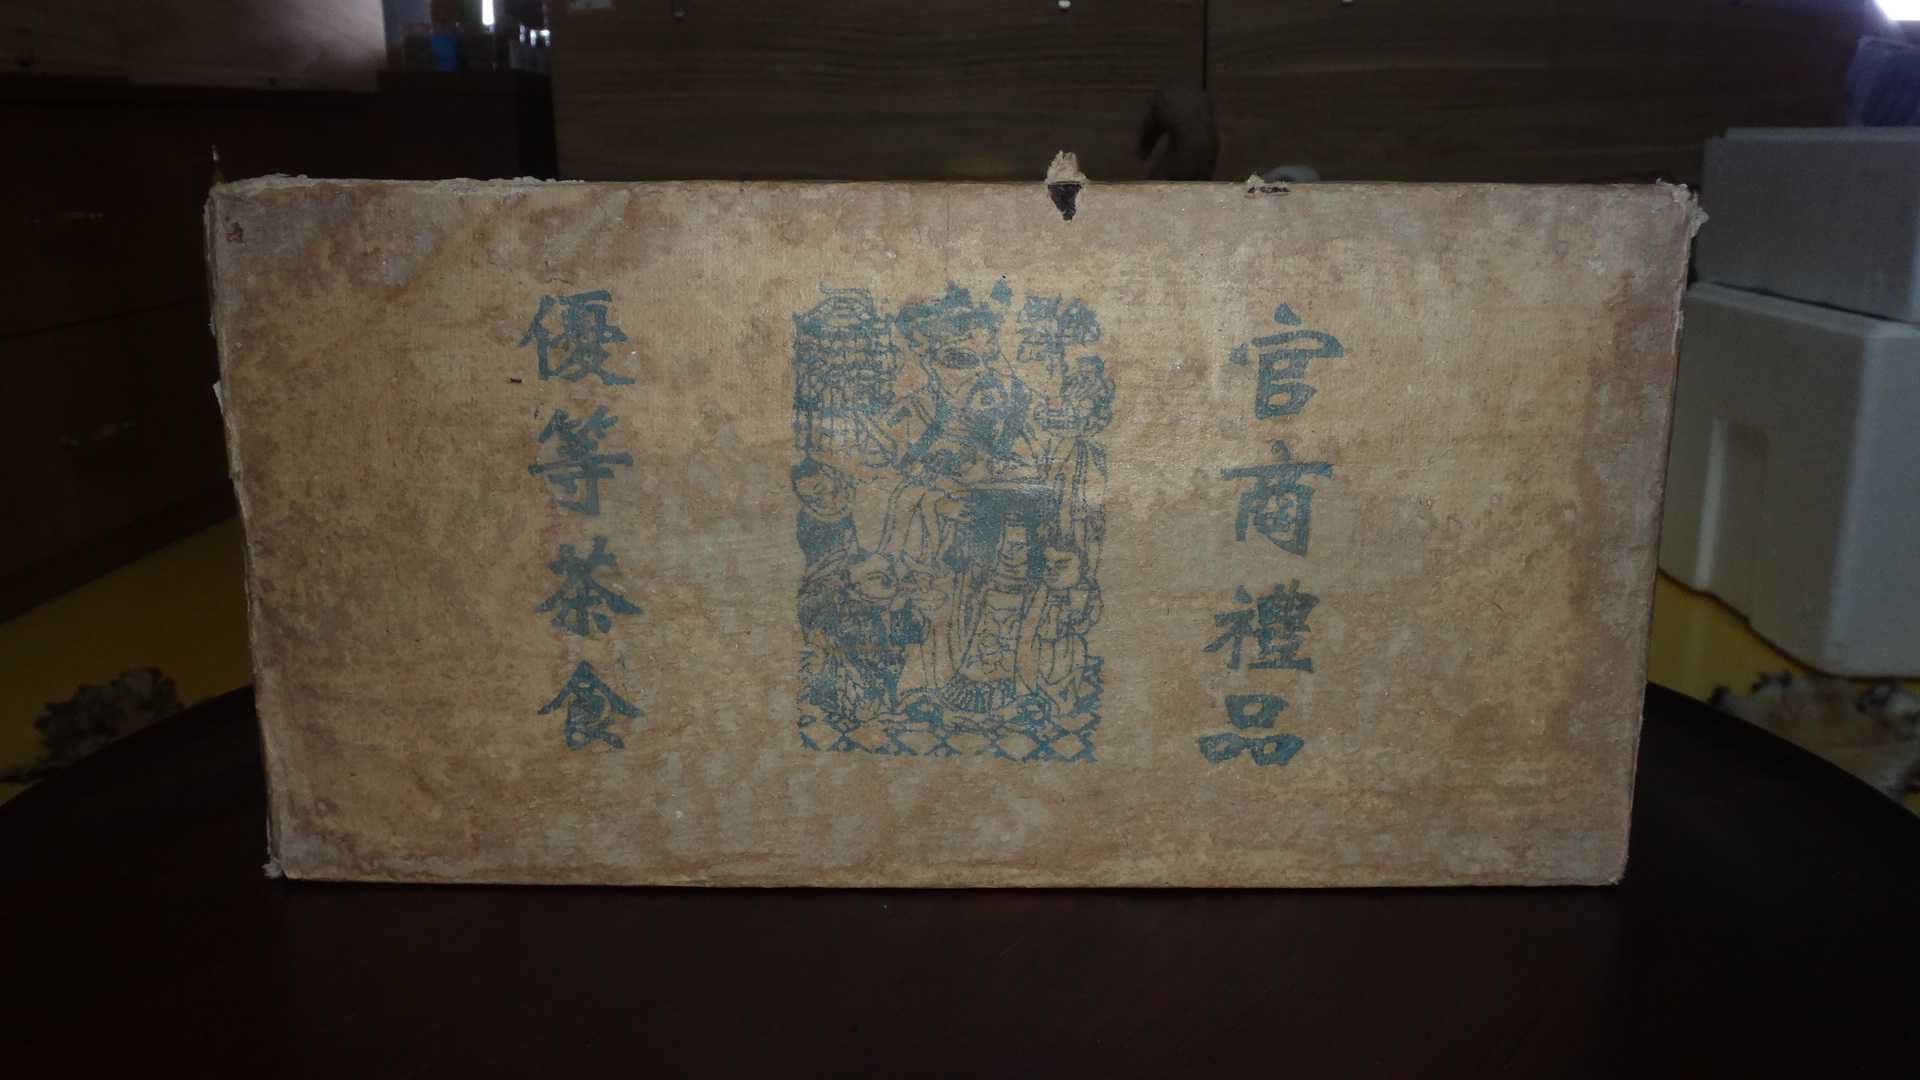 官商禮品
優等茶食